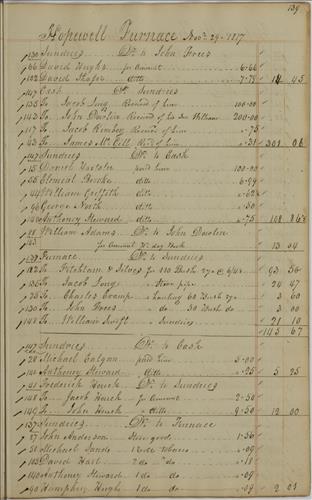 139
Hopewell Furnace Novr. 29 - 1817
130 Sundries Dr. to John Frees
66 David Hughs for Amount 6.66
102 David ditto 7.79 14 45
147 Cash Dr. Sundries
135 To Jacob Long Recieved of him 100.00
143 To John Dowlin Recieved of his Son William 200.00
117 To Jacob Recd. of him .75
63 To James Mc Cell Recd. of him .31 301 06
147 Sundries Dr. to Cash
15 Daniel paid him 100.00
35 Brooke ditto 6.94
144 William Griffith ditto .62½
96 George North ditto .50
140 Anthoney Steward ditto .75 108
88 William Adams Dr. to John Dowlin
143 for Amount pr day Book 13 04
139 Furnace Dr. to Sundries
112 To & Silver for 150 Bush 93 56
136 To Jacob Long Stove pipe 24 47
75 To Charles Cramp hauling 60 Bush 3 60
130 To John Frees do 50 Bush do 3 00
148 To William Swift Sundries 21 10
145 67
147 Sundries Dr. to Cash
28 Michael Galgan paid him 5.00
140 Anthoney Steward ditto .25 5 25
41 Frederick Heuch Dr. to Sundries
148 To Jacob Heuch for Amount 2.50
149 To John Heuch ditto 9.50 12 00
137 Sundries Dr. to Furnace
27 John Anderson Stove goods 1.56
51 Michael Sands 1 Tobacco .09
103 David Hart 2 do do .18
140 Anthoney Steward 1 do do .09
90 Humphrey Hughs 1 do do .09 2 01